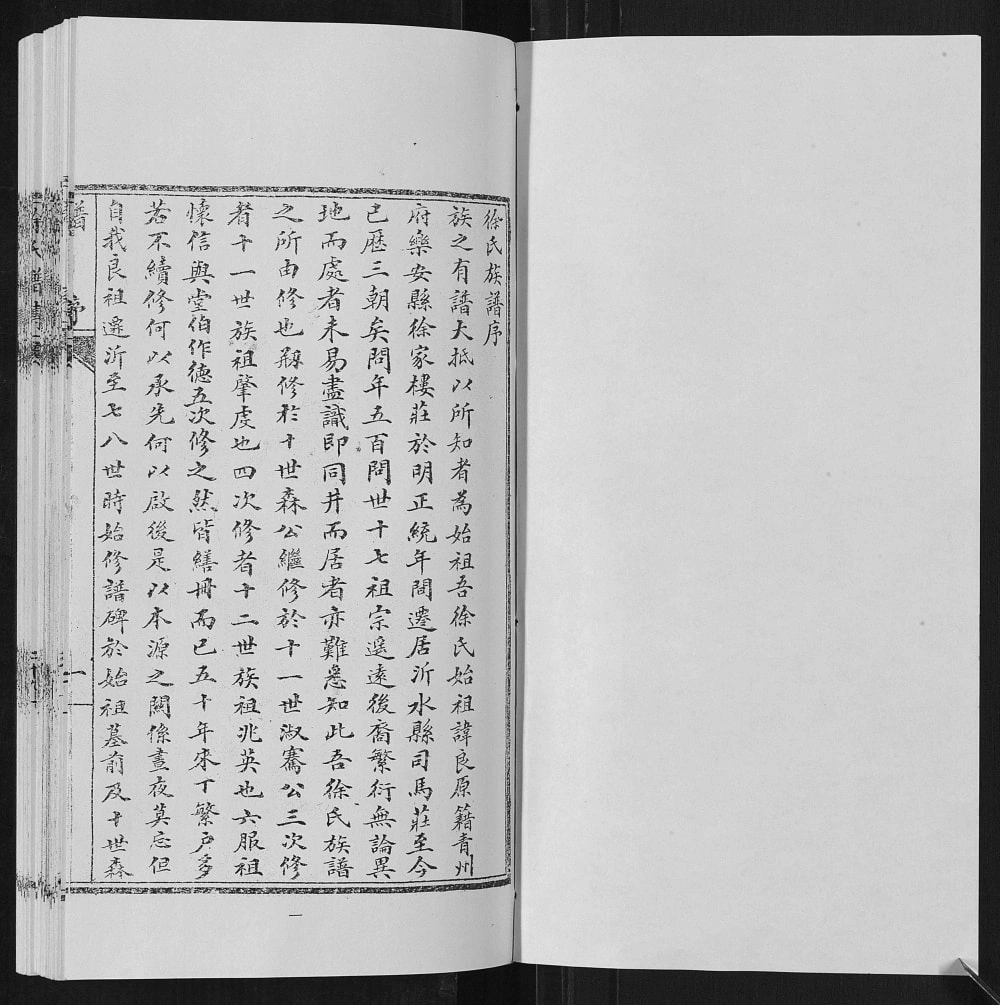 徐氏族譜序
族之有譜大抵以所知者為始祖吾徐氏始祖諱良原籍青州
府樂安縣徐家樓莊於明正統年間遷居沂水縣司馬莊至今
已歷三朝矣問年五百問世十七祖宗遥遠後裔繁衍無論異
地而處者未易盡識即同井而居者亦難悉知此吾徐氏族譜
之所由修也刱修於十世森公繼修於十一世淑騫公三次修
者十一世族祖肇虔也四次修者十二世族祖兆英也六服祖
懷信與堂伯作德五次修之然皆繕冊而已五十年來丁繁戶多
若不續修何以承先何以啟後是以本源之關係晝夜莫忘但
自我良祖遷沂至七八世時始修譜碑於始祖墓前及十世森
譜
序
一
一